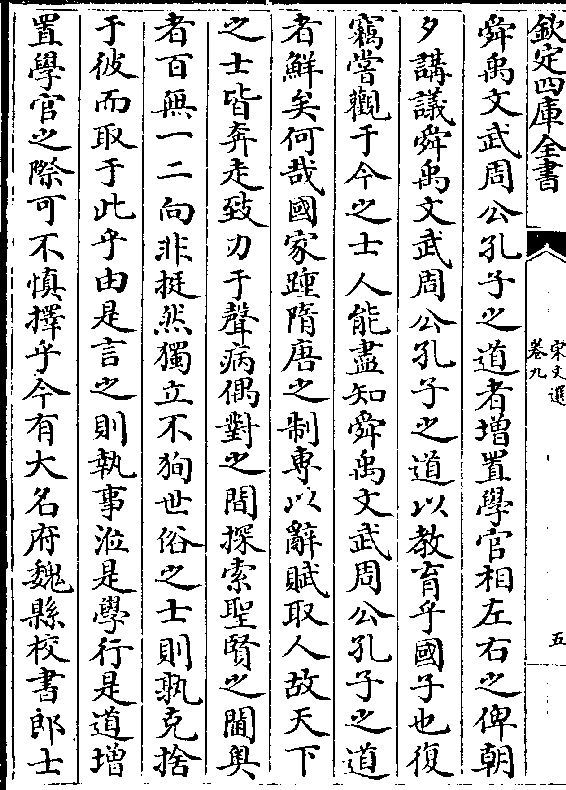 欽定四庫全書
宋文選
卷九
五
舜禹文武周公孔子之道者增置學官相左右之俾朝
夕講議舜禹文武周公孔子之道以教育乎國子也復
竊嘗觀于今之士人能盡知舜禹文武周公孔子之道
者鮮矣何哉國家踵隋唐之制專以辭賦取人故天下
之士皆奔走致力于聲病偶對之間探索聖賢之閫奥
者百無一二向非挺然獨立不狥世俗之士則孰克捨
于彼而取于此乎由是言之則執事涖是學行是道增
置學官之際可不慎擇乎今有大名府魏縣校書郎士